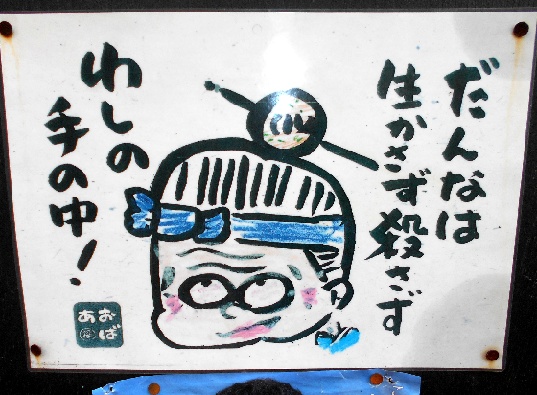 だんなは
生かさず殺さず
わしの
手の中!
おば
あ